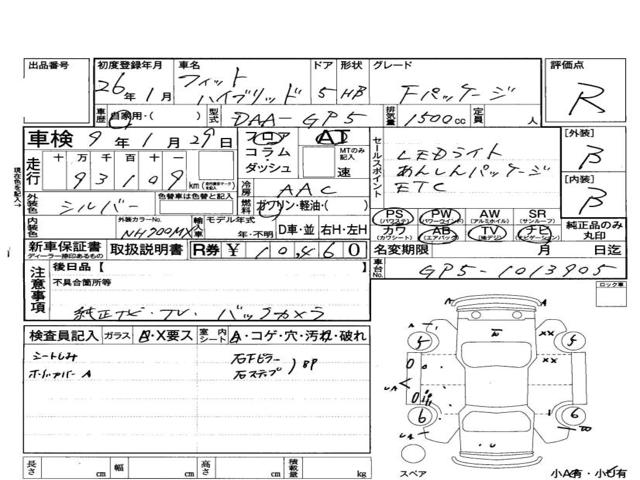 出品番号 初度登録年月 車名 ドア 形状 グレード 評価点
26年 1月 フィット ハイブリッド 5 HB Fパッケージ R
車歴 自家用・( ) 型式 DAA-GP5 排気量 1500cc 定員 人
車検 9年 1月 29日 フロア コラム・ダッシュ AI MTのみ記入 速
[外装] B
[内装] B
走行 十万千百十一 93109 km
現在色を記入→
冷房 AAC
セールスポイント LEDライト
あんしんパッケージ
ETC
外装色 シルバー 色替車は色替と記入
燃料 ガソリン・軽油・( )
内装色 外装カラーNo. NH700MX 輸入車 モデル年式 年・不明 D車・並 右H・左H
PS (パワステ) PW (パワーウインド) AW (アルミホイル) SR (サンルーフ)
カワ (カワシート) AB (エアバック) TV (地デジ) ナビ (ナビゲーション)
純正品のみ丸印
新車保証書 ディーラー捺印あるもの 取扱説明書 R券 ¥10,460
名変期限 月 日迄
車台No. GP5-1013905
ロック車
注意事項 後日品【 】
不具合箇所等
純正ナビ・TV・バックカメラ
検査員記入 ガラス A・X要ス 室内 シート A・コゲ・穴・汚れ・破れ
シートしみ 右Fピラー
右ステップ )BP
長さ cm 幅 cm 高さ cm 積載量 kg
スペア
小A有・小U有